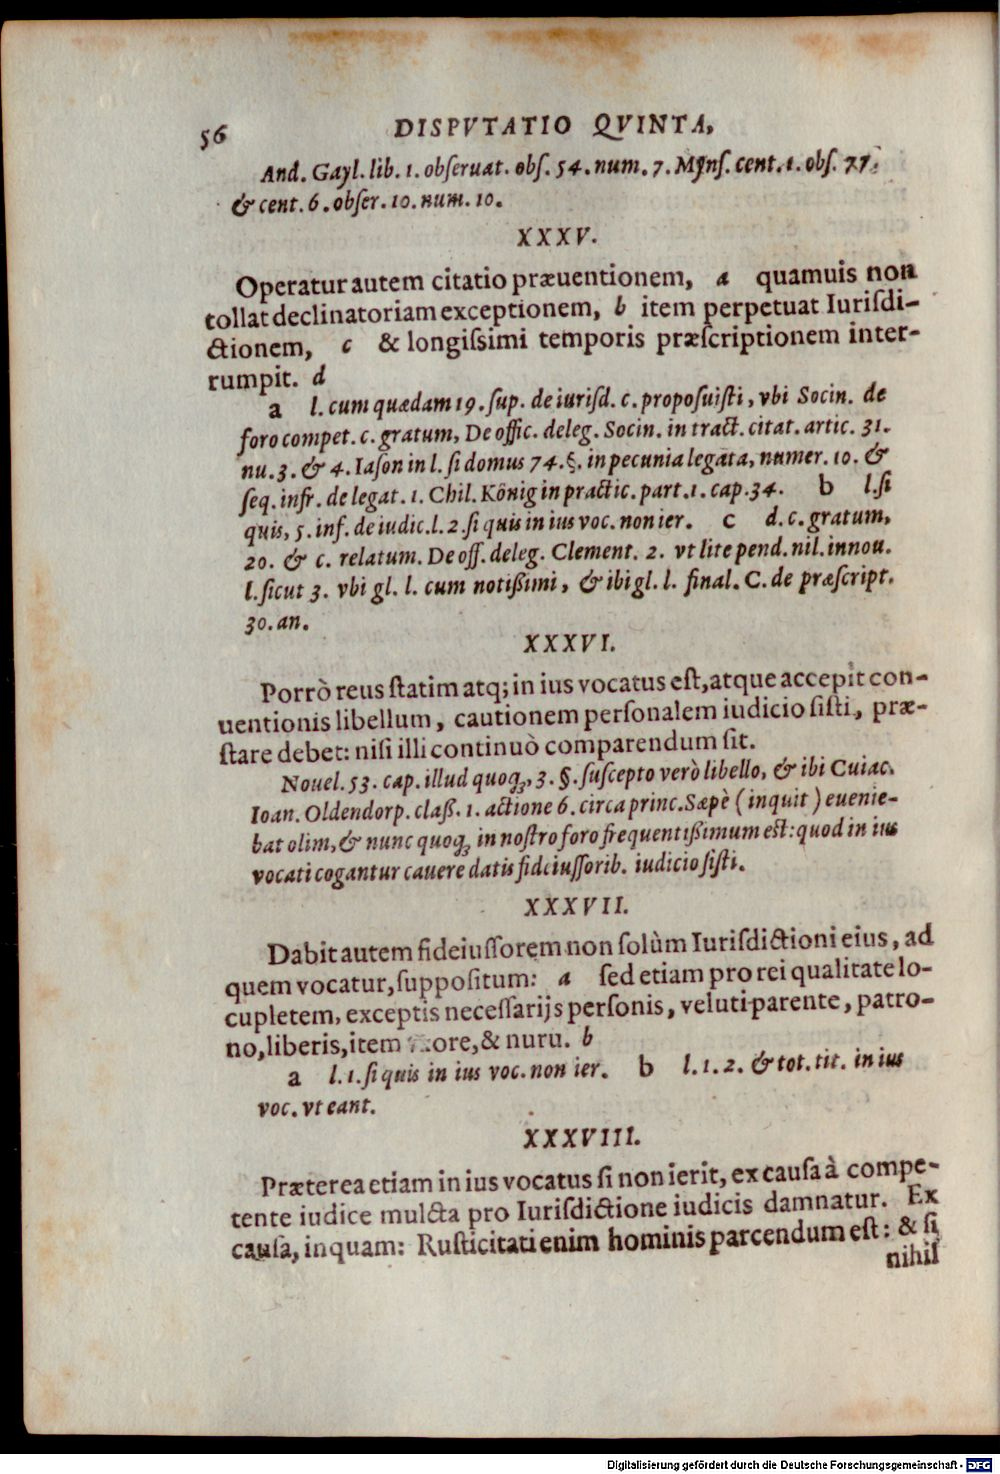 56 DISPVTATIO QVINTA,
And. Gayl. lib. 1. obſeruat. obſ. 54. num. 7. Mynſ. cent. 1. obſ. 77.
& cent. 6. obſer. 10. num. 10.
XXXV.
Operatur autem citatio præuentionem, a quamuis non
tollat declinatoriam exceptionem, b item perpetuat Iuriſdi-
ctionem, c & longiſsimi temporis præſcriptionem inter-
rumpit. d
a l. cum quædam 19. ſup. de iuriſd. c. propoſuiſti, vbi Socin. de
foro compet. c. gratum, De offic. deleg. Socin. in tract. citat. artic. 31.
nu. 3. & 4. Iaſon in l. ſi domus 74. §. in pecunia legata, numer. 10. &
ſeq. infr. de legat. 1. Chil. König in practic. part. 1. cap. 34. b l. ſi
quis, 5. inf. de iudic. l. 2. ſi quis in ius voc. non ier. c d. c. gratum,
20. & c. relatum. De off. deleg. Clement. 2. vt lite pend. nil. innou.
l. ſicut 3. vbi gl. l. cum notißimi, & ibi gl. l. final. C. de præſcript.
30. an.
XXXVI.
Porrò reus ſtatim atq; in ius vocatus eſt, atque accepit con-
uentionis libellum, cautionem perſonalem iudicio ſiſti, præ-
ſtare debet: niſi illi continuò comparendum ſit.
Nouel. 53. cap. illud quoq;, 3. §. ſuſcepto verò libello, & ibi Cuiac.
Ioan. Oldendorp. claß. 1. actione 6. circa princ. Sæpè (inquit) euenie-
bat olim, & nunc quoq; in noſtro foro frequentißimum eſt: quod in ius
vocati cogantur cauere datis fideiuſſorib. iudicio ſiſti.
XXXVII.
Dabit autem fideiuſſorem non ſolùm Iuriſdictioni eius, ad
quem vocatur, ſuppoſitum: a ſed etiam pro rei qualitate lo-
cupletem, exceptis neceſſarijs perſonis, veluti parente, patro-
no, liberis, item ore, & nuru. b
a l. 1. ſi quis in ius voc. non ier. b l. 1. 2. & tot. tit. in ius
voc. vt eant.
XXXVIII.
Præterea etiam in ius vocatus ſi non ierit, ex cauſa à compe-
tente iudice mulcta pro Iuriſdictione iudicis damnatur. Ex
cauſa, inquam: Ruſticitati enim hominis parcendum eſt: & ſi
nihil
Digitalisierung gefördert durch die Deutsche Forschungsgemeinschaft - DFG